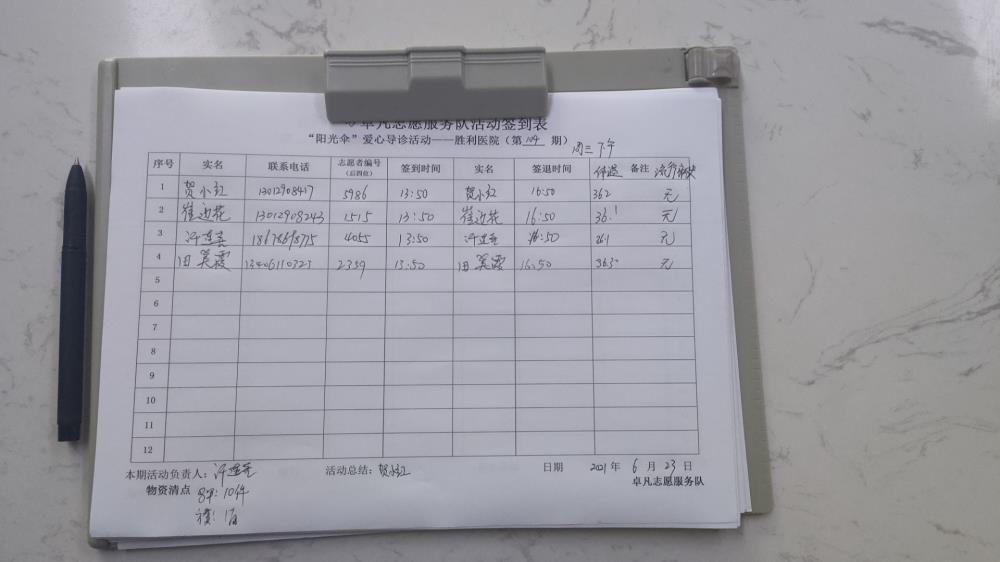 卓凡志愿服务队活动签到表
“阳光伞”爱心导诊活动——胜利医院（第 期） 周三下午
序号 实名 联系电话 志愿者编号（后四位） 签到时间 实名 签退时间 体温 备注
1 贺小红 13012908417 5986 13:50 贺小红 16:50 362 无
2 崔迎花 13012908243 1515 13:50 崔迎花 16:50 36.1 无
3 4055 13:50 16:50 36.1 无
4 田美霞 2359 13:50 田美霞 16:50 36.5 无
5
6
7
8
9
10
11
12
本期活动负责人： 活动总结：贺小红 日期 2021年 6月 23日
物资清点 10件 卓凡志愿服务队